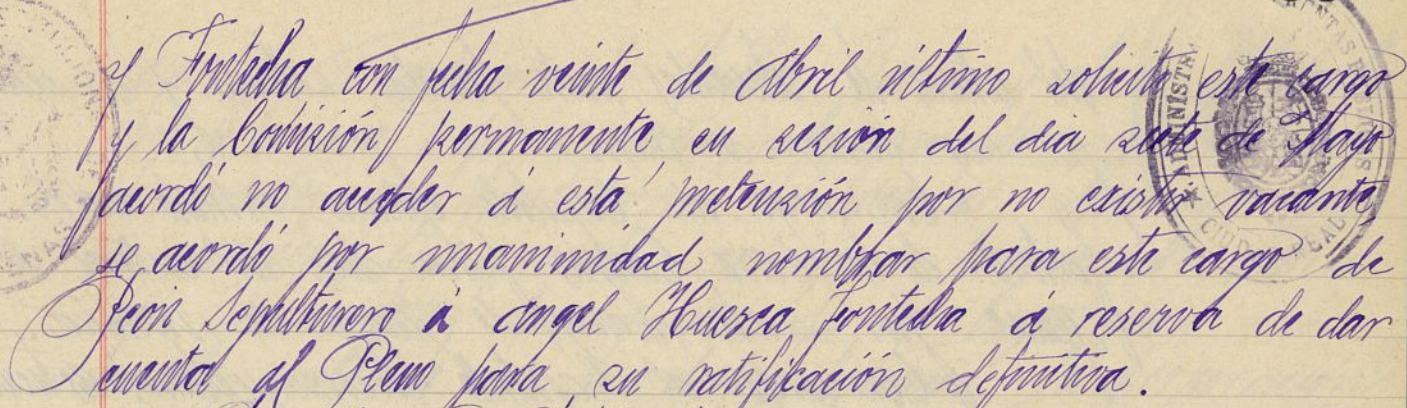 y Fontecha con fecha veinte de Abril último solicitó este cargo
y la Comisión permanente en sesión del dia siete de Mayo
acordó no acceder á está pretensión por no existir vacante,
se acordó por unanimidad nombrar para este cargo de
Peón Sepulturero á Angel Huesca Fontecha á reserva de dar
cuenta al Pleno para su ratificación definitiva.